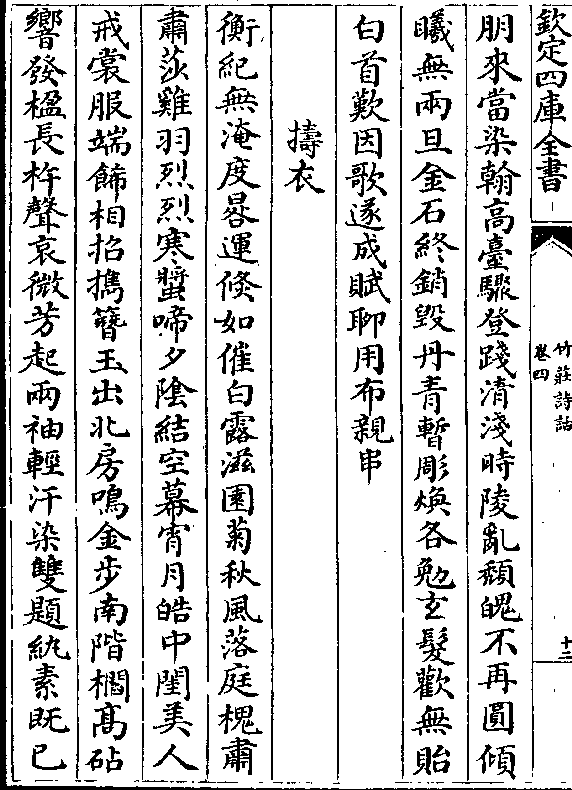 欽定四庫全書
竹莊詩話
卷四
十二
朋來當染翰高臺驟登踐清淺時陵亂頹魄不再圓傾
曦無兩旦金石終銷毀丹青暫彫煥各勉玄髮歡無貽
白首歎因歌遂成賦聊用布親串
擣衣
衡紀無淹度晷運倐如催白露滋園菊秋風落庭槐肅
肅莎雞羽烈烈寒螿啼夕陰結空幕宵月皓中閨美人
戒裳服端飾相招擕簪玉出北房鳴金步南階櫩高砧
響發楹長杵聲哀微芳起兩袖輕汗染雙題紈素既已